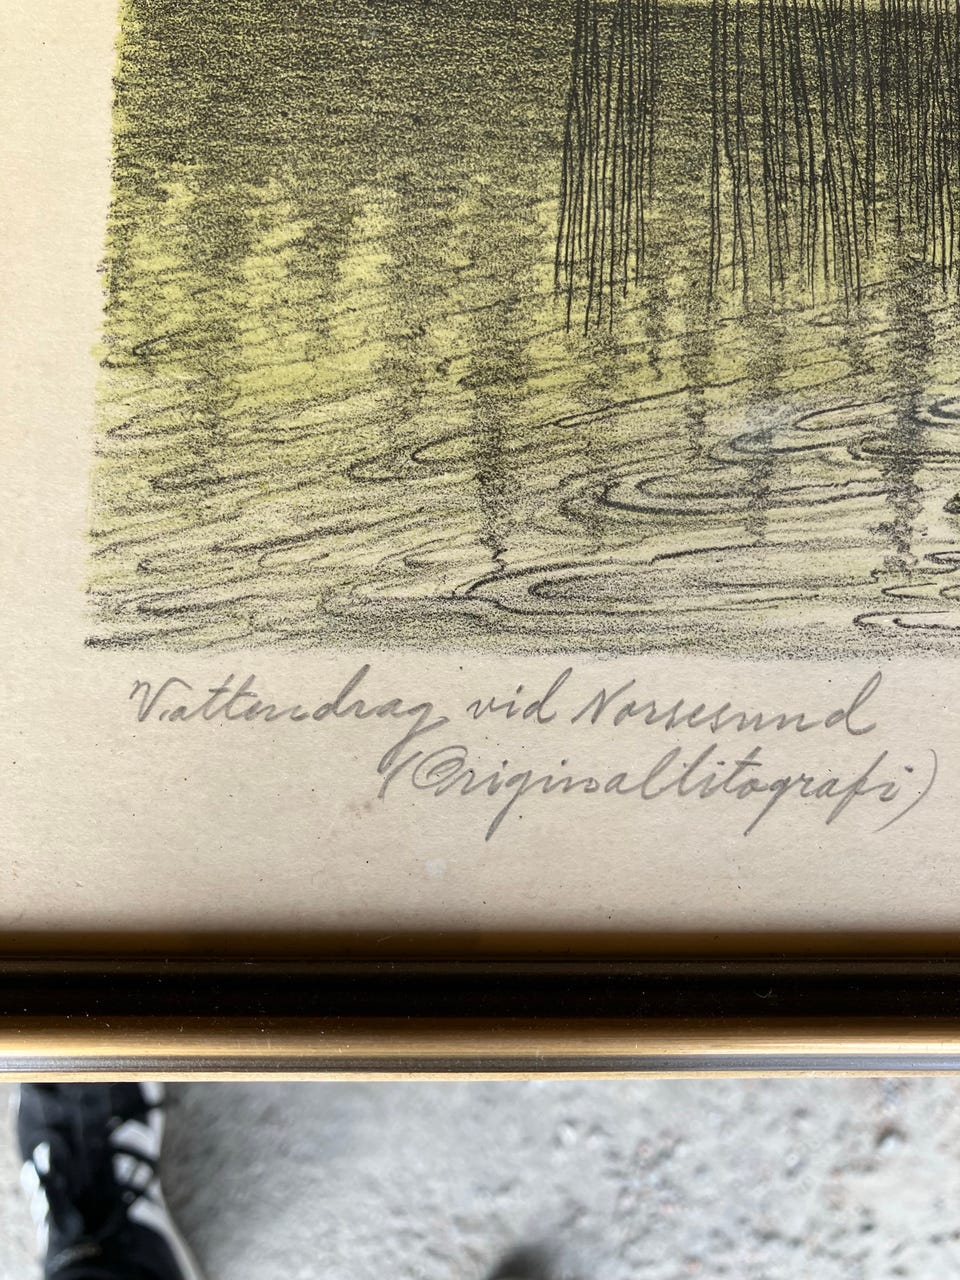 Vattendrag vid Norsesund
(Originallitografi)